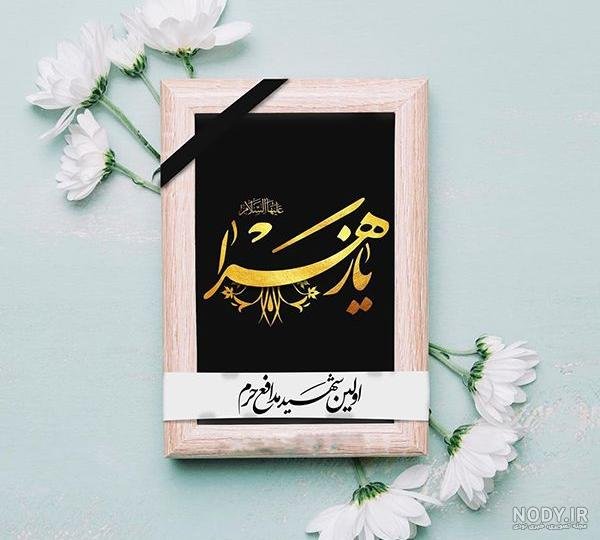 علیها السلام
یا زهرا
اولین شهید مدافع حرم
NODY.IR
مجله تصویری، خبری نودی